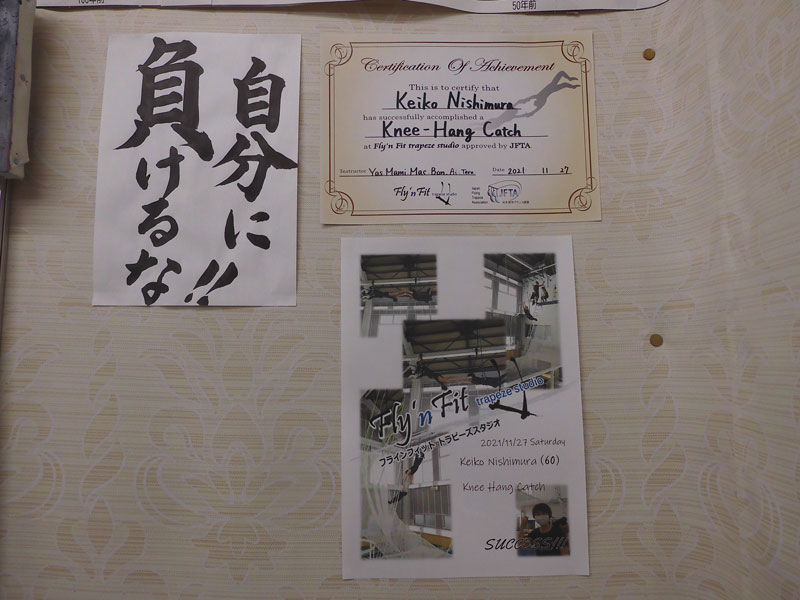 100年前
50年前
自分に
負けるな!!
Certification Of Achievement
This is to certify that
Keiko Nishimura
has successfully accomplished a
Knee-Hang Catch
at Fly'n Fit trapeze studio approved by JFTA
Instructor Yas. Mami. Mac. Bon. Ai. Teru. Date 2021 11 27
Fly'n Fit trapeze studio
Japan
Flying
Trapeze
Association
JFTA
Fly'n Fit trapeze studio
フラインフィット トラピーズスタジオ
2021/11/27 Saturday
Keiko Nishimura (60)
Knee Hang Catch
SUCCESS!!!